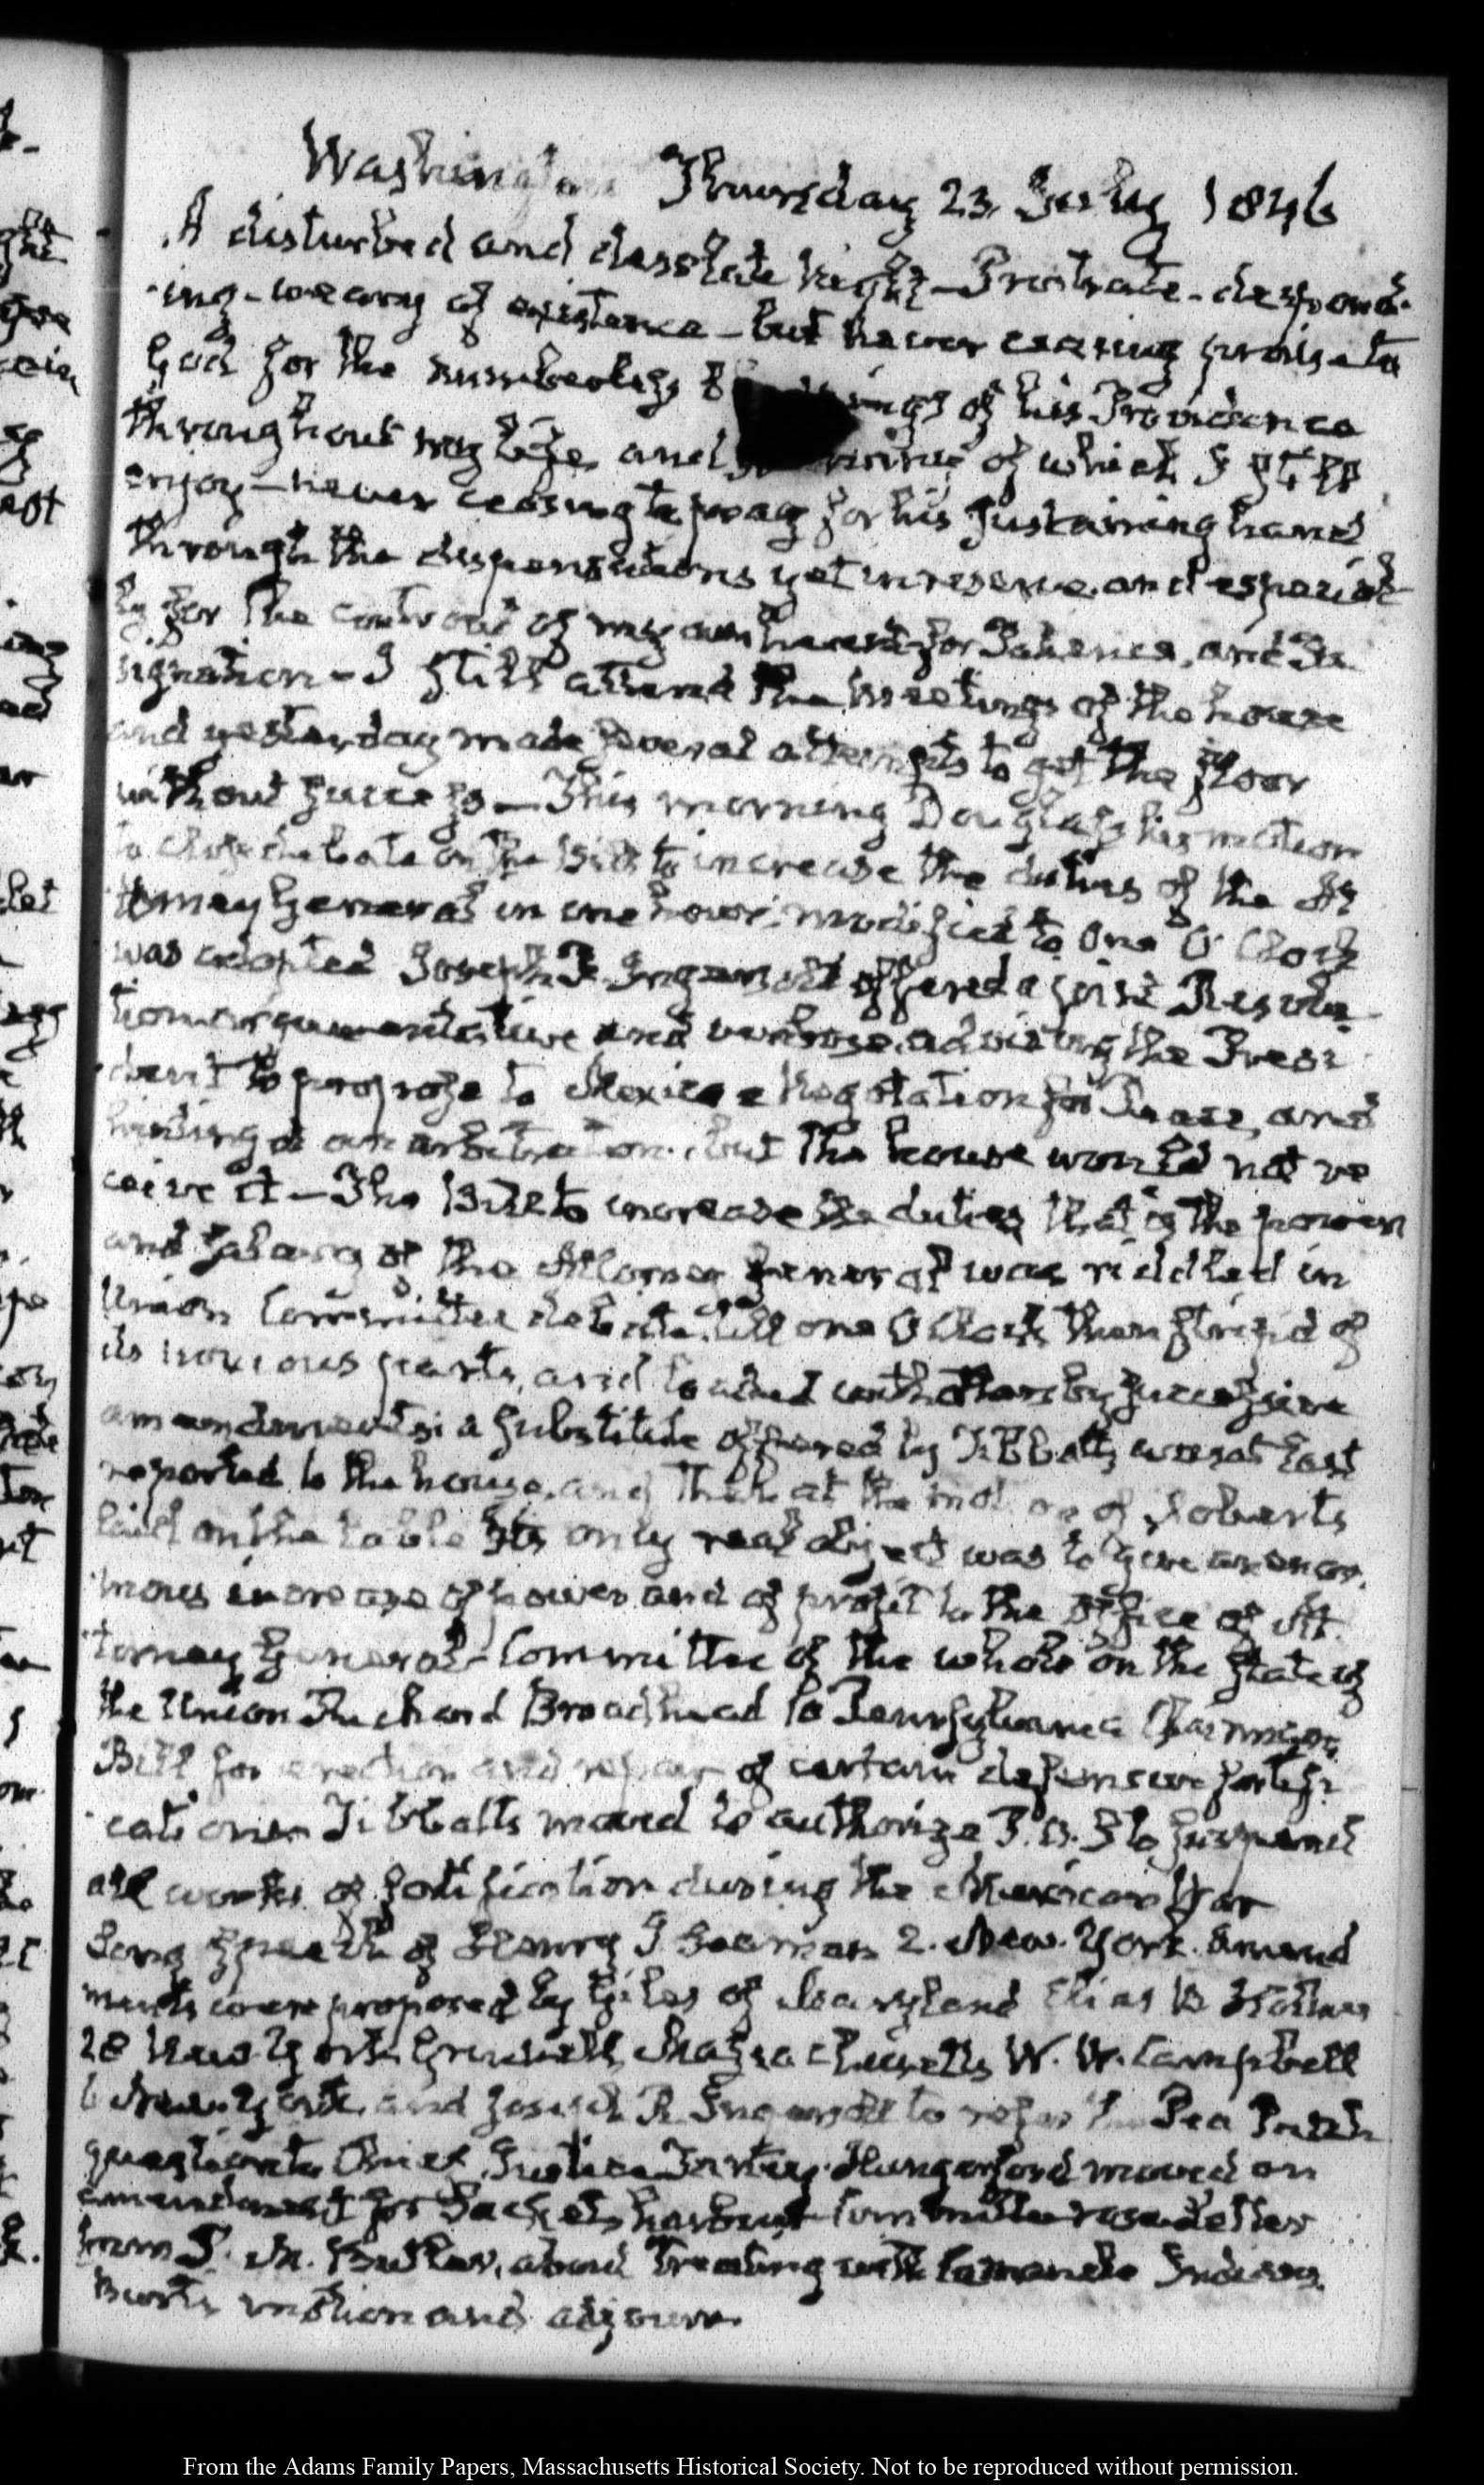 Washington Thursday 23. July 1846
A disturbed and desolate night – Prostrate – despond-
ing – weary of existence – but never ceasing praise to
God for the numberless of his Providence
throughout my life, and of which I still
enjoy – never ceasing to pray for his sustaining hand
through the dispensations yet in reserve, and especial-
ly for the controul of my own heart for Patience, and Re-
signation – I still attend the meetings of the house
and yesterday made several attempts to get the floor
without success – This morning Douglass his motion
to close debate on the Bill to increase the duties of the At-
torney General in one hour, modified to one O'Clock
was adopted Joseph R. Ingersoll offered a joint Resolu-
tion argumentative and verbose, advising the Presi-
dent to propose to Mexico a Negotiation for Peace, and
hinting at an arbitration. but the house would not re-
ceive it – The Bill to increase the duties that is the power
and salary of the Attorney General was riddled in
Union Committee debate till one O'Clock then stripd of
its noxious parts, and loaded with others by successive
amendments, a substitute offered by Tibbatts was at last
reported to the house, and then at the motion of Roberts
laid on the table Its only real object was to give an enor-
mous increase of power and of profit to the Office of At-
torney General – Committee of the whole on the state of
the Union Richard Brodhead 10 Pennsylvania Chairman,
Bill for erection and repair of certain defensive fortifi-
cations Tibbatts moved to authorize P.U.S to suspend
all works of fortification during the Mexican War
Long speech of Henry I Seaman 2. New-York. Amend
ments were proposed by Giles of Maryland Elias B Holmes
28 New-York Grinnell, Massachusetts W. W. Campbell
6 New-York, and Joseph R Ingersoll to refer the Pea Patch
question to Chief Justice Taney. Hungerford moved an
amendment for Sackets harbour – Committee rose – Letter
from P. M. Butler, about treating with Camanche Indians.
Burt's motion and adjourn.
From the Adams Family Papers, Massachusetts Historical Society. Not to be reproduced without permission.